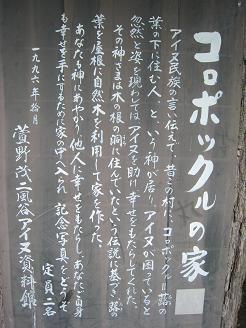 コロポックルの家
アイヌ民族の言い伝えで、昔この村に、コロポックル=蕗の
葉の下に住む、人、という神が居り、アイヌが困っていると
忽然と姿を現しては、アイヌを助け幸せをもたらしてくれた。
その神さまは木の根の洞に住んでいたという伝説に基づき、蕗の
葉を屋根に自然木を利用して家を作った。
あなたも神にあやかり、他人に幸せをもたらし、あなた自身
も幸せを手にするために家の中へ入られ、記念写真をどうぞ
定員二名
一九九六年拾月
萱野茂二風谷アイヌ資料館